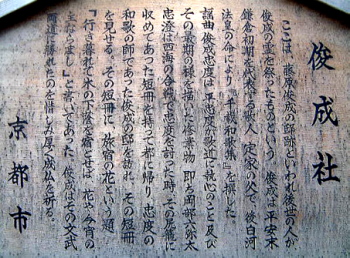 俊成社
ここは、藤原俊成の邸跡といわれ後世の人が
俊成の霊を祭ったものという。俊成は平安末
鎌倉初期を代表する歌人・定家の父で、後白河
法皇の命により「千載和歌集」を撰した。
謡曲「俊成忠度」は平忠度が歌道に執心のこと及び
その最期の様を描いた修羅物。即ち岡部六弥太
忠澄は四海の合戦で忠度を討った時、その尻籠に
収めてあった短冊を持って都に帰り、忠度の
和歌の師であった俊成の邸を訪れ、その短冊
を見せる。その短冊に「旅宿の花」という題
『行き暮れて木の下蔭を宿とせば 花や今宵の
主ならまし』と書いてあった。俊成はその文武
両道に勝れたのを惜しみ厚く成仏を祈る。
京都市